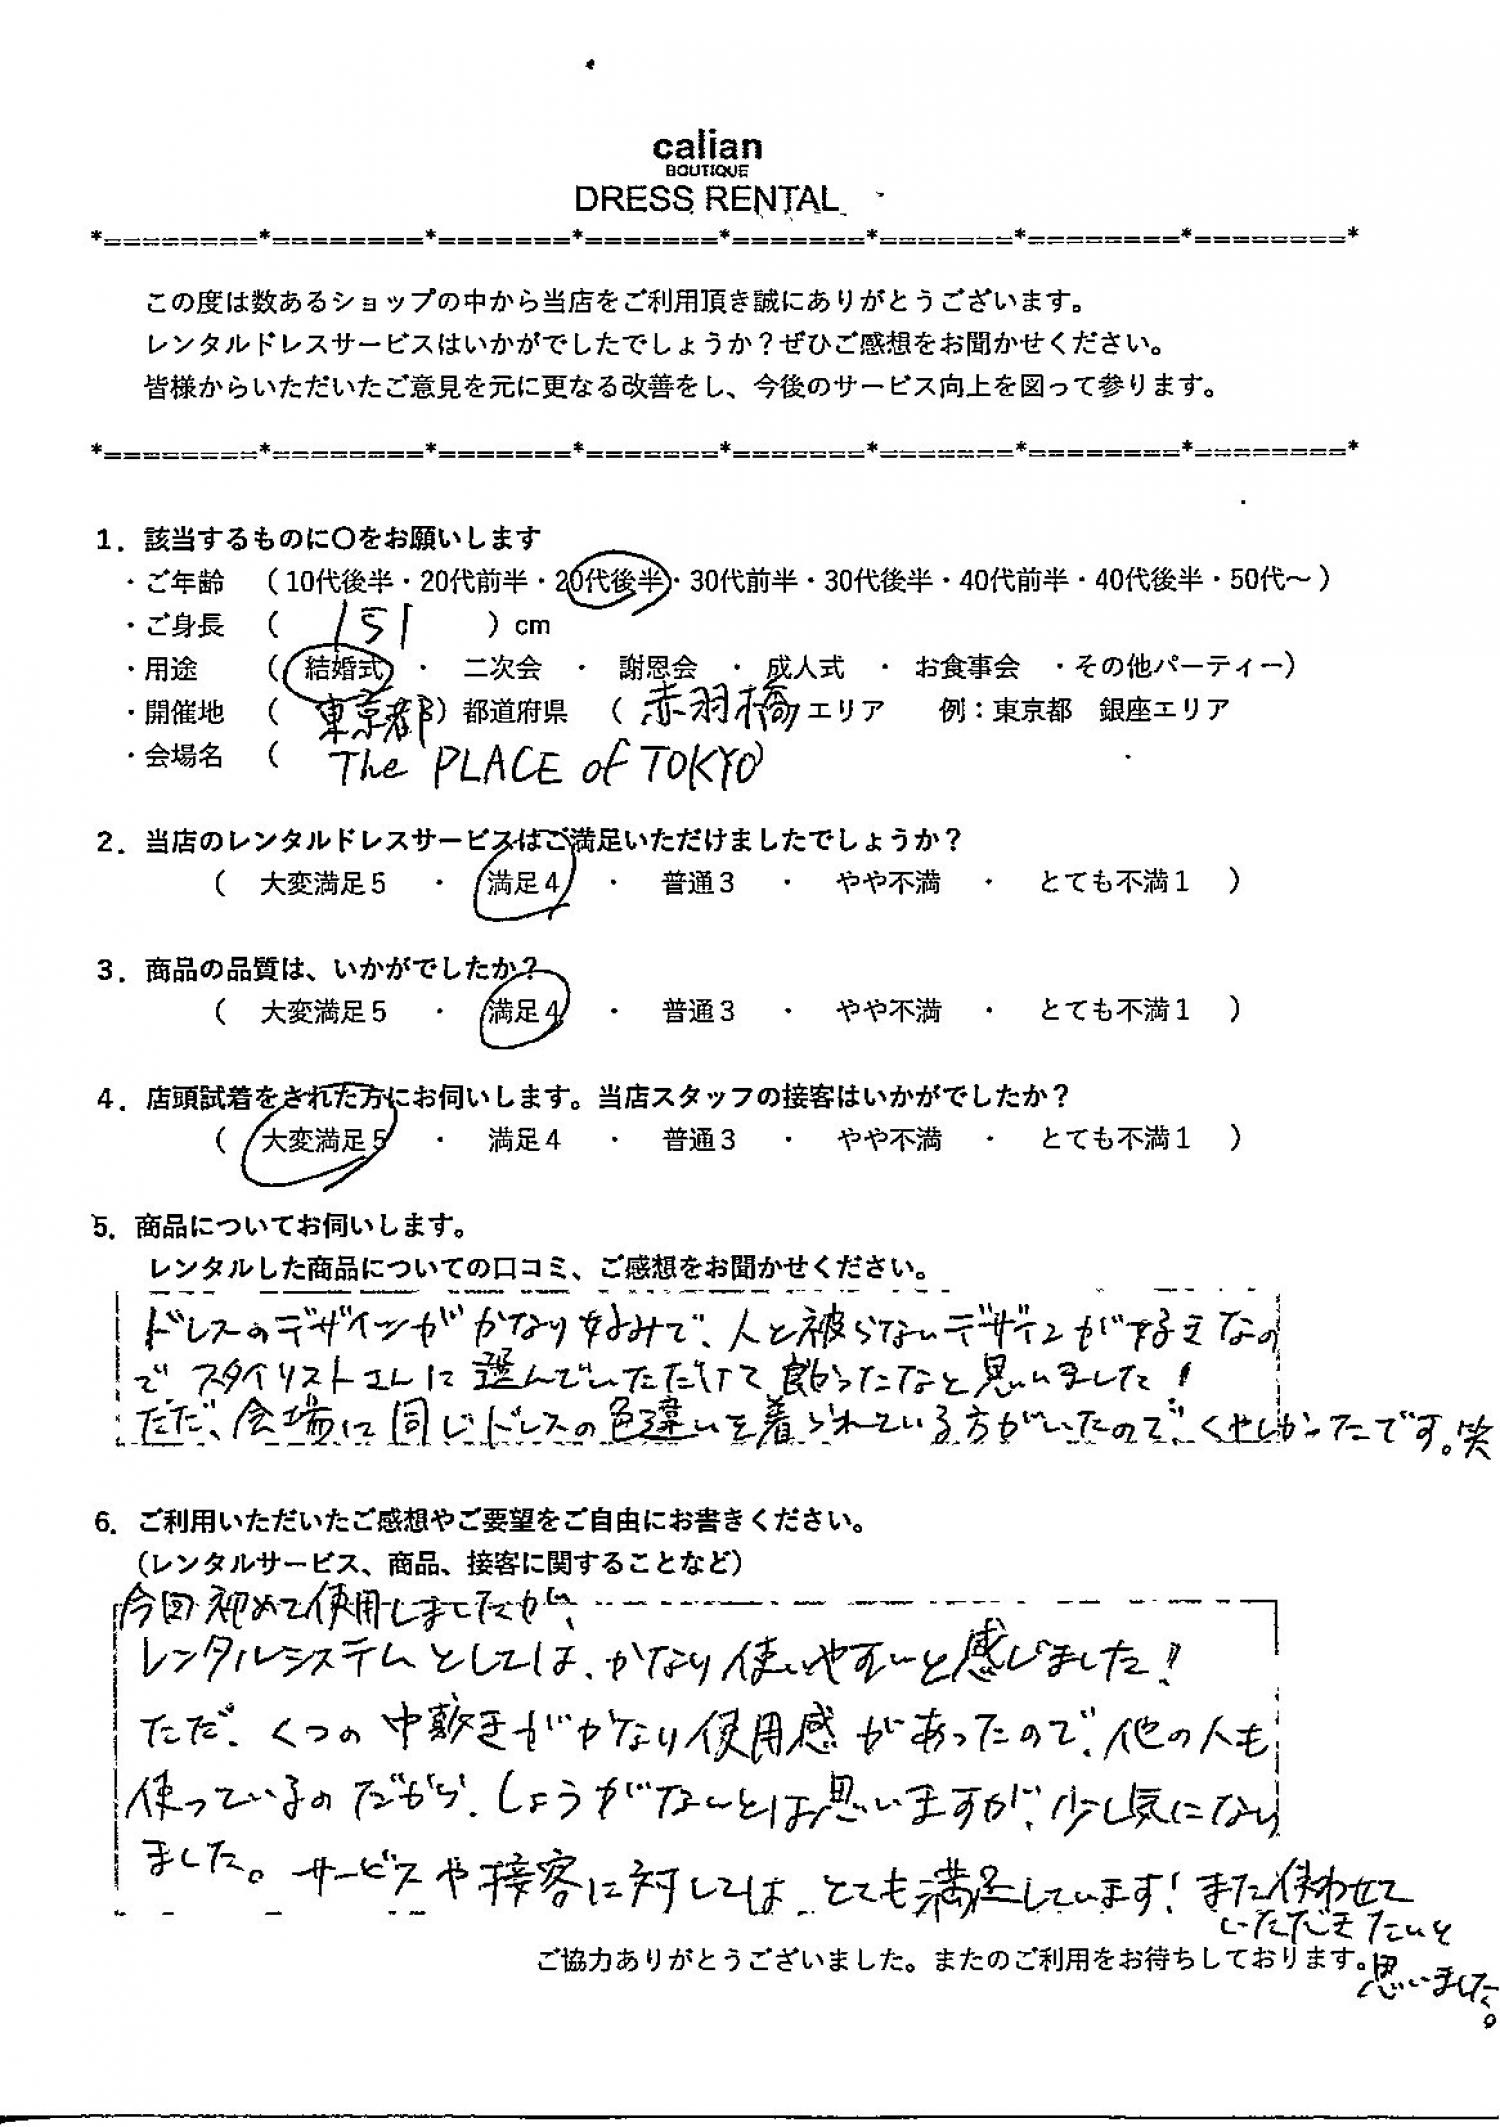 calian
BOUTIQUE
DRESS RENTAL
*=========*========*=======*=======*=======*=======*========*========*
この度は数あるショップの中から当店をご利用頂き誠にありがとうございます。
レンタルドレスサービスはいかがでしたでしょうか？ぜひご感想をお聞かせください。
皆様からいただいたご意見を元に更なる改善をし、今後のサービス向上を図って参ります。
*=========*========*=======*=======*=======*=======*========*========*
1．該当するものに〇をお願いします
・ご年齢 （10代後半・20代前半・20代後半・30代前半・30代後半・40代前半・40代後半・50代～）
・ご身長 （ 151 ）cm
・用途 （ 結婚式 ・ 二次会 ・ 謝恩会 ・ 成人式 ・ お食事会 ・その他パーティー）
・開催地 （ 東京都 ）都道府県 （ 赤羽橋 エリア 例：東京都 銀座エリア
・会場名 （ The PLACE of TOKYO ）
2．当店のレンタルドレスサービスはご満足いただけましたでしょうか？
（ 大変満足5 ・ 満足4 ・ 普通3 ・ やや不満 ・ とても不満1 ）
3．商品の品質は、いかがでしたか？
（ 大変満足5 ・ 満足4 ・ 普通3 ・ やや不満 ・ とても不満1 ）
4．店頭試着をされた方にお伺いします。当店スタッフの接客はいかがでしたか？
（ 大変満足5 ・ 満足4 ・ 普通3 ・ やや不満 ・ とても不満1 ）
5．商品についてお伺いします。
レンタルした商品についての口コミ、ご感想をお聞かせください。
ドレスのデザインがかなり好みで、人と被らないデザインが好きなの
で スタイリストさんに選んでいただけて良かったなと思いました！
ただ、会場に同じドレスの色違いを着られている方がいたので、くやしかったです。笑
6．ご利用いただいたご感想やご要望をご自由にお書きください。
（レンタルサービス、商品、接客に関することなど）
今回初めて使用しましたが、
レンタルシステムとしては、かなり使いやすいと感じました！
ただ、くつの中敷きがかなり使用感があったので、他の人も
使っているのだから、しょうがないとは思いますが、少し気になり
ました。サービスや接客に対しては、とても満足しています！また使わせて
いただきたいと
ご協力ありがとうございました。またのご利用をお待ちしております。
思いました。